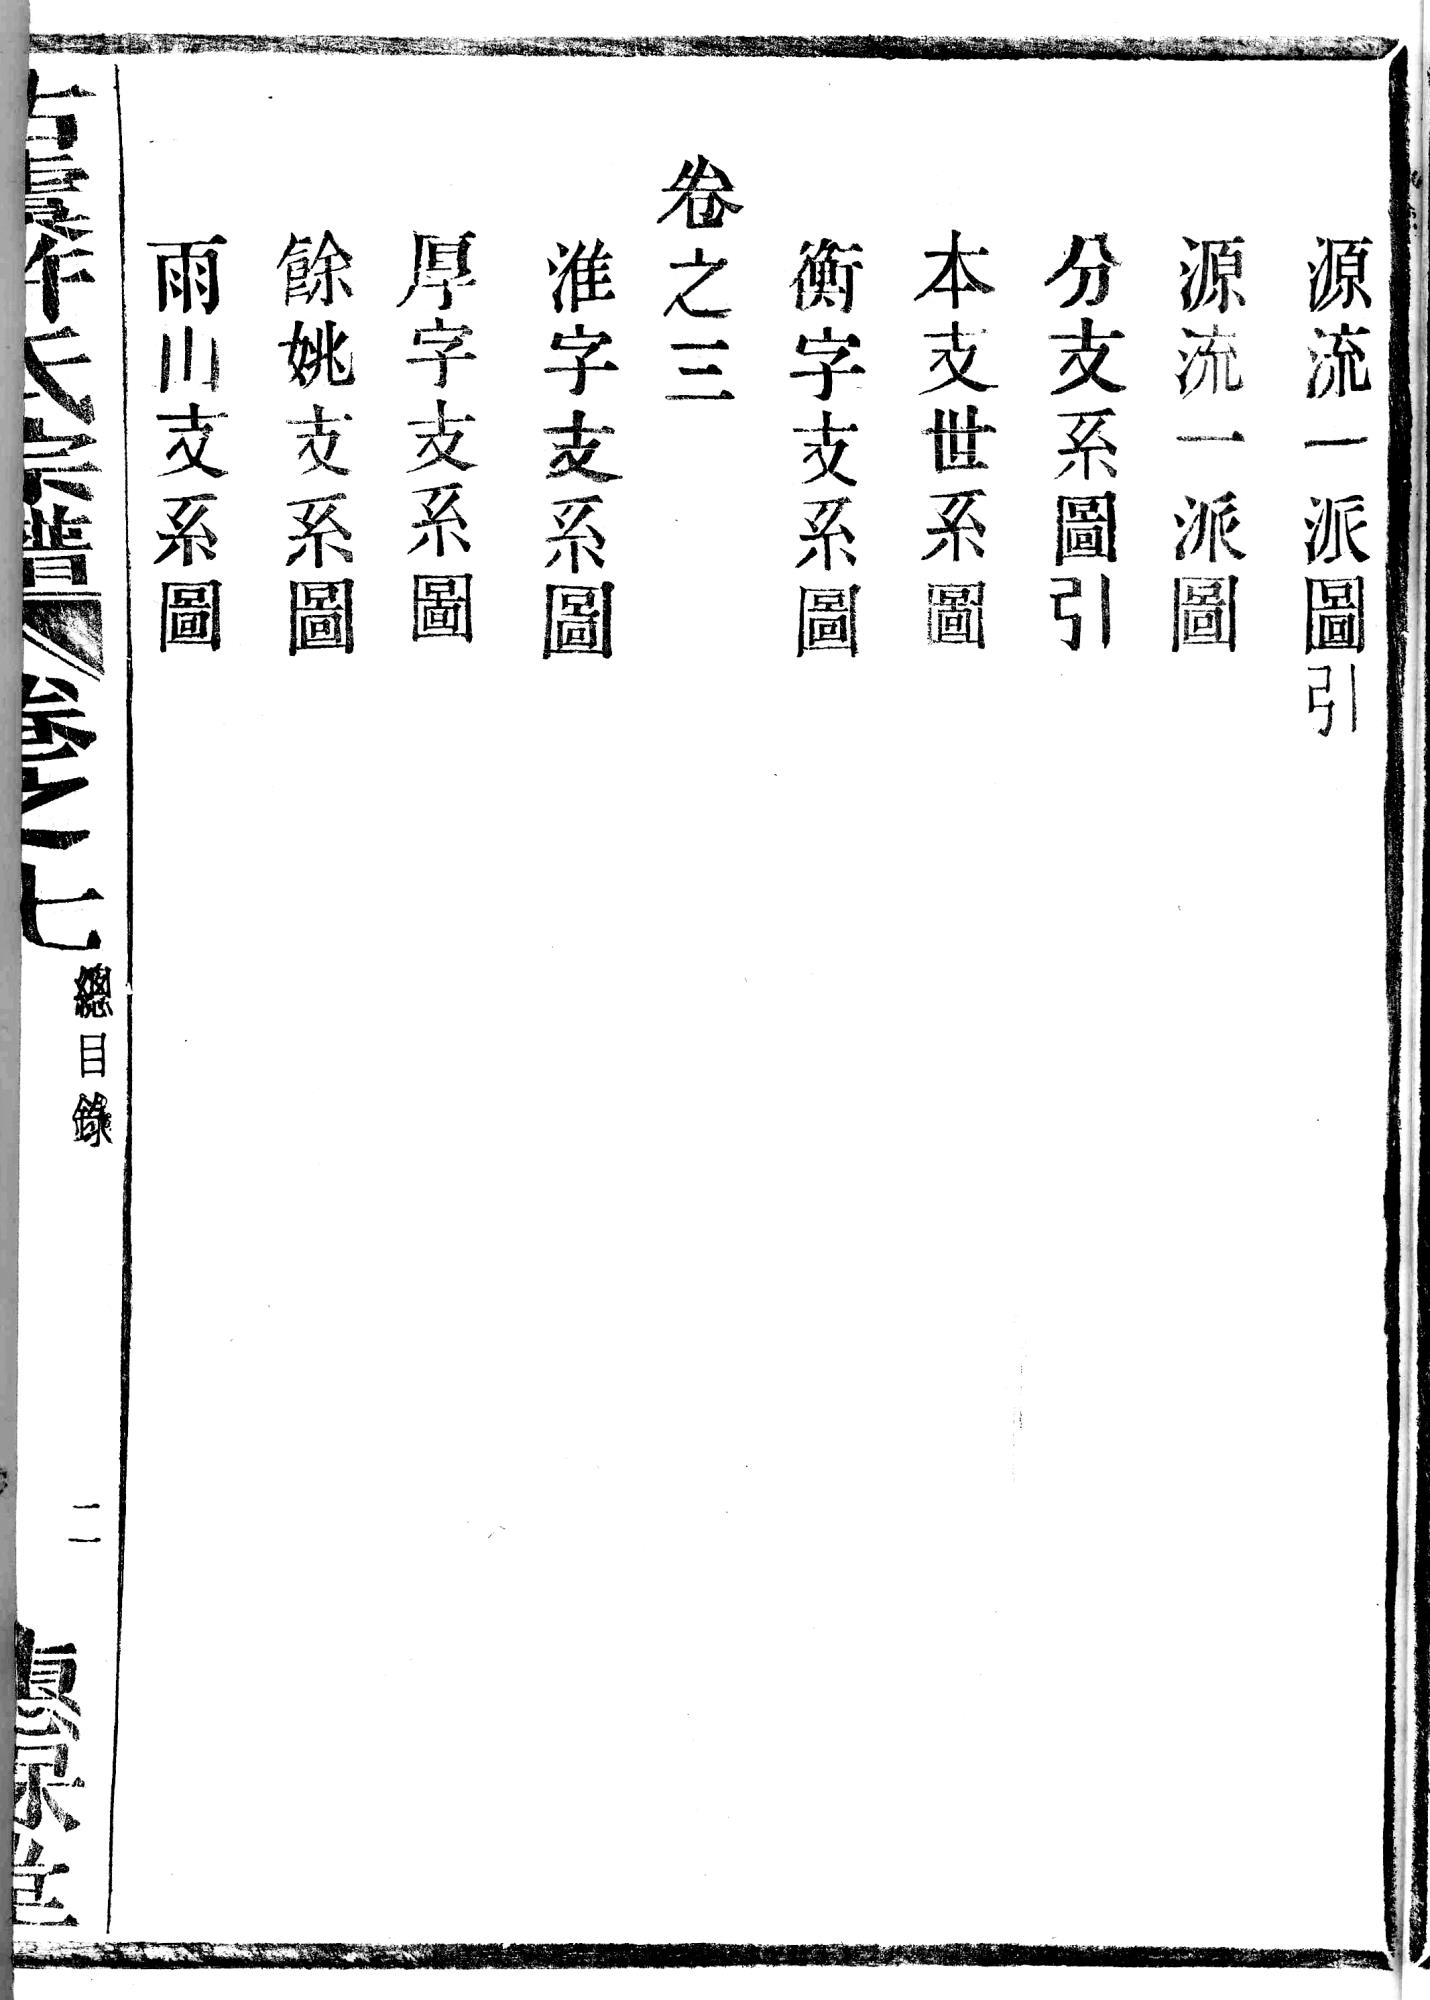 源流一派圖引
源流一派圖
分支系圖引
本支世系圖
衡字支系圖
卷之三
淮字支系圖
厚字支系圖
餘姚支系圖
雨山支系圖
氏宗譜
卷之七
總目錄
二
堂